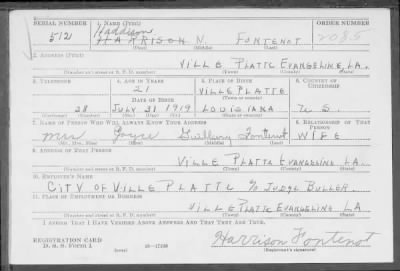 SERIAL NUMBER 1. NAME (Print) ORDER NUMBER
Haddison
512 HARRISON N. FONTENOT 2085
(First) (Middle) (Last)
2. ADDRESS (Print)
VILLE PLATTE EVANGELINE, LA.
(Number and street or R. F. D. number) (Town) (County) (State)
3. TELEPHONE 4. AGE IN YEARS 5. PLACE OF BIRTH 6. COUNTRY OF CITIZENSHIP
21 VILLE PLATTE
(Town or county)
DATE OF BIRTH
28 JULY 31 1919 LOUISIANA U. S.
(Exchange) (Number) (Mo.) (Day) (Yr.) (State or country)
7. NAME OF PERSON WHO WILL ALWAYS KNOW YOUR ADDRESS 8. RELATIONSHIP OF THAT PERSON
Mrs Joyce Guillory Fontenot WIFE
(Mr., Mrs., Miss) (First) (Middle) (Last)
9. ADDRESS OF THAT PERSON
VILLE PLATTE EVANGELINE LA.
(Number and street or R. F. D. number) (Town) (County) (State)
10. EMPLOYER'S NAME
CITY OF VILLE PLATTE c/o JUDGE BULLER.
11. PLACE OF EMPLOYMENT OR BUSINESS
VILLE PLATTE EVANGELINE LA
(Number and street or R. F. D. number) (Town) (County) (State)
I AFFIRM THAT I HAVE VERIFIED ABOVE ANSWERS AND THAT THEY ARE TRUE.
REGISTRATION CARD
D. S. S. FORM 1 (over) 16—17105
Harrison Fontenot
(Registrant's signature)